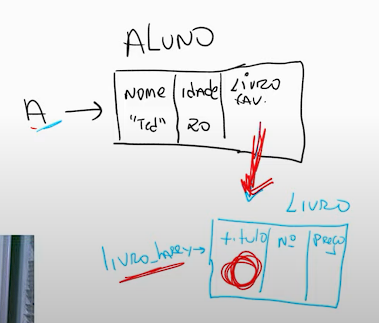 ALUNO
A
NOME IDADE LIVRO
FAV.
"Ted" 20
LIVRO
livro_harry titulo Nº preço